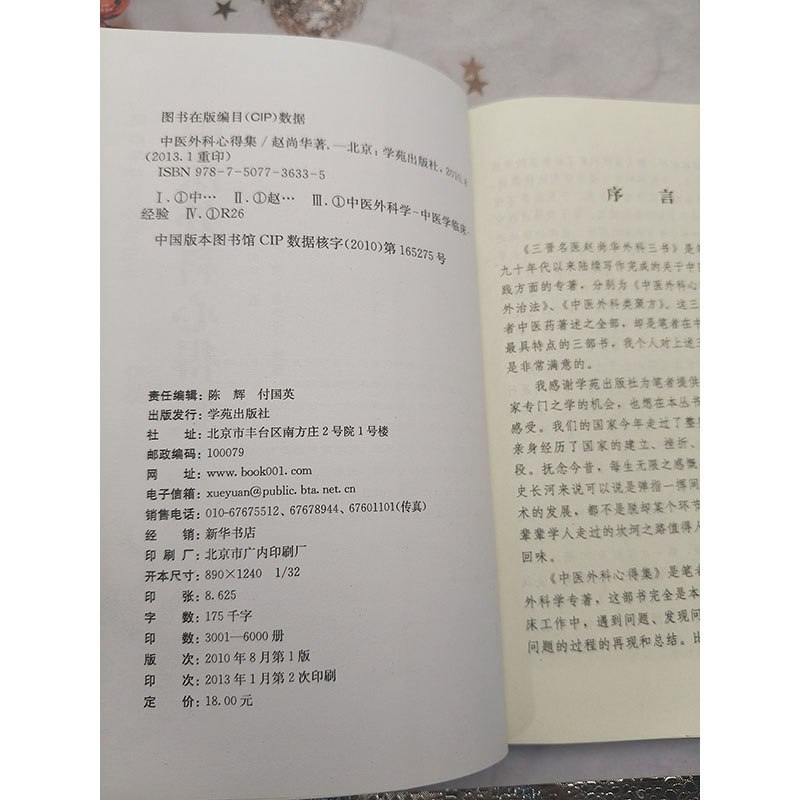 图书在版编目(CIP)数据
中医外科心得集/赵尚华著.—北京:学苑出版社,2010.8
(2013.1重印)
ISBN 978-7-5077-3633-5
Ⅰ.①中… Ⅱ.①赵… Ⅲ.①中医外科学-中医学临床-
经验 Ⅳ.①R26
中国版本图书馆CIP数据核字(2010)第165275号
责任编辑:陈 辉 付国英
出版发行:学苑出版社
社 址:北京市丰台区南方庄2号院1号楼
邮政编码:100079
网 址:www.book001.com
电子信箱:xueyuan@public.bta.net.cn
销售电话:010-67675512、67678944、67601101(传真)
经 销:新华书店
印 刷 厂:北京市广内印刷厂
开本尺寸:890×1240 1/32
印 张:8.625
字 数:175千字
印 数:3001—6000册
版 次:2010年8月第1版
印 次:2013年1月第2次印刷
定 价:18.00元
序 言
《三晋名医赵尚华外科三书》是笔
九十年代以来陆续写作完成的关于中医
践方面的专著,分别为《中医外科心
外治法》、《中医外科类聚方》。这三
者中医药著述之全部,却是笔者在中
最具特点的三部书,我个人对上述三
是非常满意的。
我感谢学苑出版社为笔者提供
家专门之学的机会,也想在本丛书
感受。我们的国家今年走过了整整
亲身经历了国家的建立、挫折、
段。抚念今昔,每生无限之感慨
史长河来说可以说是弹指一挥间
术的发展,都不是脱却某个环节
辈辈学人走过的坎坷之路值得人
回味。
《中医外科心得集》是笔者
外科学专著,这部书完全是本
床工作中,遇到问题、发现问
问题的过程的再现和总结。比